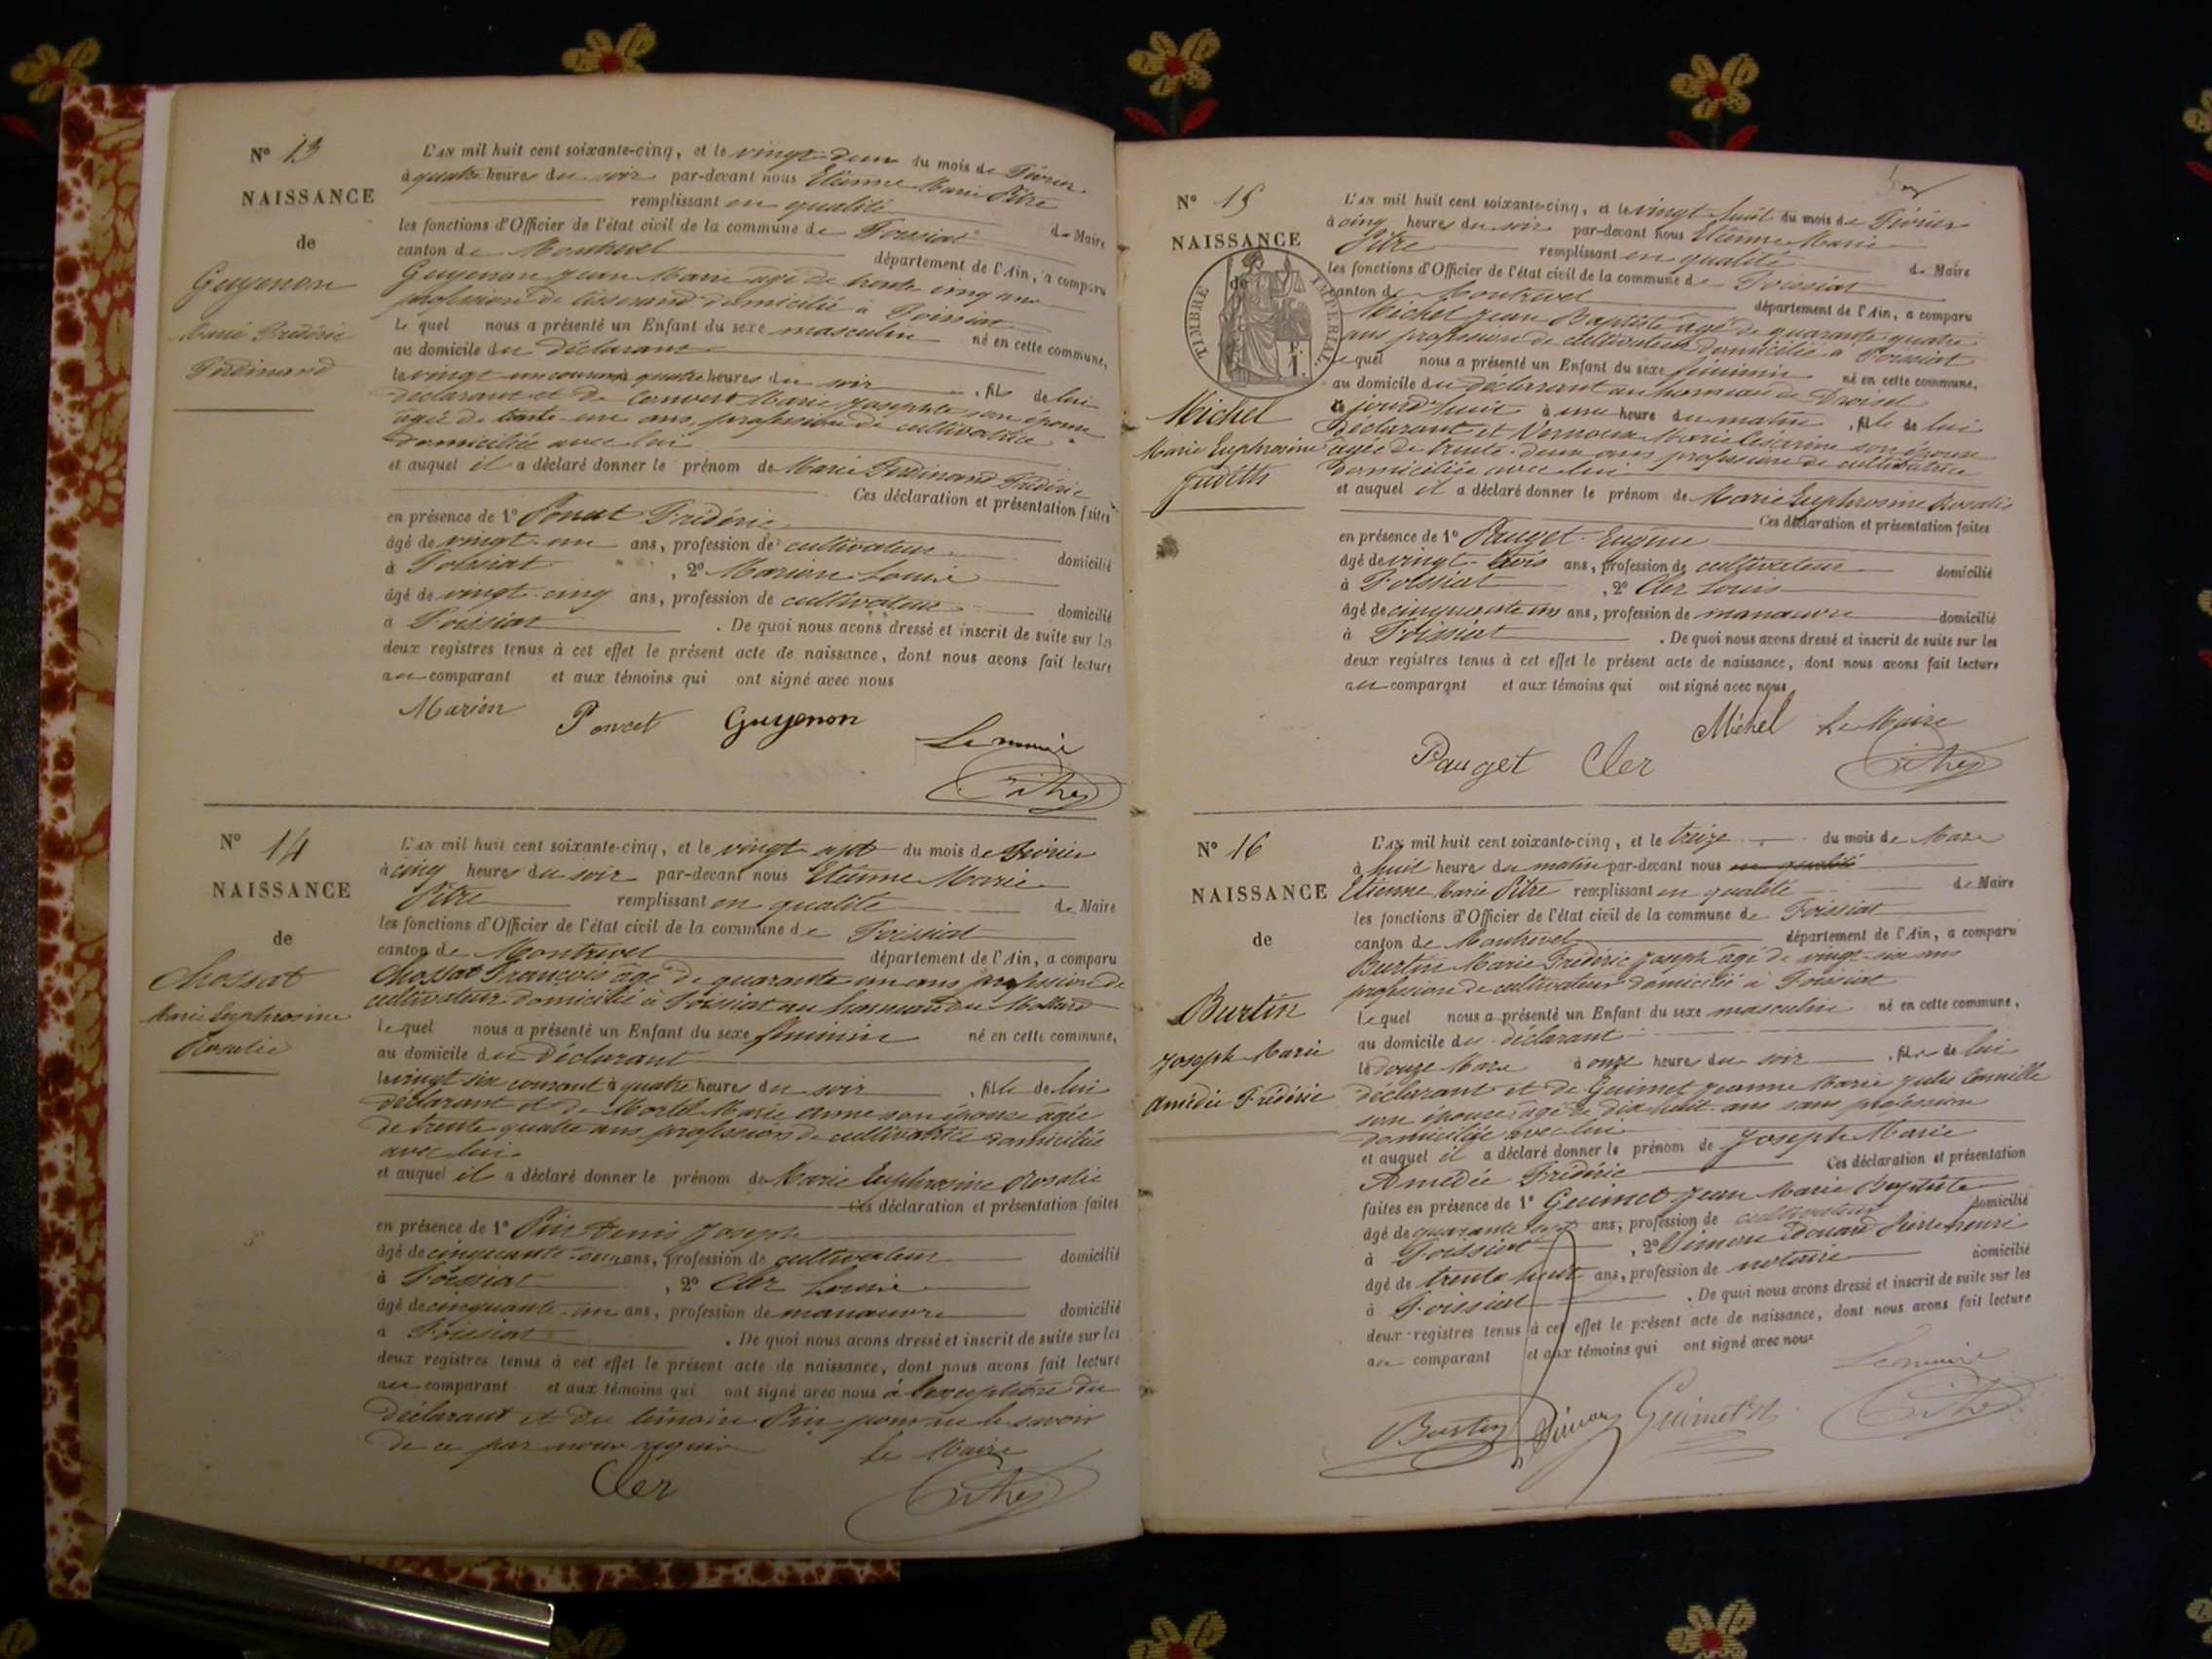 N° 13
NAISSANCE
de
Guyenon
Marie Frédéric
Ferdinand
L'AN mil huit cent soixante-cinq, et le vingt-deux du mois de Février
à quatre heures du soir par-devant nous Etienne Marie Pitre
remplissant en qualité de Maire
les fonctions d'Officier de l'état civil de la commune de Foissiat
canton de Montrevel département de l'Ain, a comparu
Guyenon Jean Marie âgé de trente cinq ans
profession de tisserand domicilié à Foissiat
Le quel nous a présenté un Enfant du sexe masculin né en cette commune,
au domicile du déclarant
le vingt-un courant à quatre heures du soir, fils de lui
déclarant et de Convert Marie Josephte son épouse
âgée de trente-un ans, profession de cultivatrice
domiciliée avec lui
et auquel il a déclaré donner le prénom de Marie Ferdinand Frédéric
Ces déclaration et présentation faites
en présence de 1° Poncet Frédéric
âgé de vingt-un ans, profession de cultivateur domicilié
à Foissiat, 2° Marion Louis
âgé de vingt-cinq ans, profession de cultivateur domicilié
à Foissiat. De quoi nous avons dressé et inscrit de suite sur les
deux registres tenus à cet effet le présent acte de naissance, dont nous avons fait lecture
au comparant et aux témoins qui ont signé avec nous
Marion Poncet Guyenon Le maire
Pitre
N° 14
NAISSANCE
de
Chossat
Marie Euphrosine
Rosalie
L'AN mil huit cent soixante-cinq, et le vingt-sept du mois de Février
à cinq heures du soir par-devant nous Etienne Marie
Pitre remplissant en qualité de Maire
les fonctions d'Officier de l'état civil de la commune de Foissiat
canton de Montrevel département de l'Ain, a comparu
Chossat François âgé de quarante un ans profession de
cultivateur domicilié à Foissiat au hameau du Mollard
le quel nous a présenté un Enfant du sexe féminin né en cette commune,
au domicile du déclarant
le vingt six courant à quatre heures du soir, fille de lui
déclarant et de Morlel Marie Anne son épouse âgée
de trente quatre ans profession de cultivatrice domiciliée
avec lui
et auquel il a déclaré donner le prénom de Marie Euphrosine Rosalie
Ces déclaration et présentation faites
en présence de 1° Pin Denis Joseph
âgé de cinquante ans, profession de cultivateur domicilié
à Foissiat, 2° Cler Louis
âgé de cinquante-un ans, profession de manœuvre domicilié
à Foissiat. De quoi nous avons dressé et inscrit de suite sur les
deux registres tenus à cet effet le présent acte de naissance, dont nous avons fait lecture
au comparant et aux témoins qui ont signé avec nous à l'exception du
déclarant et du témoin Pin pour ne le savoir
de ce par nous requis Le Maire
Cler Pitre
N° 15
NAISSANCE
de
TIMBRE IMPÉRIAL
Michel
Marie Euphrosine
Judith
L'AN mil huit cent soixante-cinq, et le vingt-huit du mois de Février
à cinq heures du soir par-devant nous Etienne Marie
Pitre remplissant en qualité de Maire
les fonctions d'Officier de l'état civil de la commune de Foissiat
canton de Montrevel département de l'Ain, a comparu
Michel Jean Baptiste âgé de quarante quatre
ans profession de cultivateur domicilié à Foissiat
Le quel nous a présenté un Enfant du sexe féminin né en cette commune,
au domicile du déclarant au hameau de
jourd'huit à une heure du matin, fille de lui
déclarant et Vernoux Marie Césarine son épouse
âgée de trente-deux ans profession de cultivatrice
domiciliée avec lui
et auquel il a déclaré donner le prénom de Marie Euphrosine Rosalie
Ces déclaration et présentation faites
en présence de 1° Pauget Eugène
âgé de vingt-trois ans, profession de cultivateur domicilié
à Foissiat, 2° Cler Louis
âgé de cinquante un ans, profession de manœuvre domicilié
à Foissiat. De quoi nous avons dressé et inscrit de suite sur les
deux registres tenus à cet effet le présent acte de naissance, dont nous avons fait lecture
au comparant et aux témoins qui ont signé avec nous
Michel Le Maire
Pauget Cler Pitre
N° 16
NAISSANCE
de
Burtin
Joseph Marie
Amédée Frédéric
L'AN mil huit cent soixante-cinq, et le treize du mois de Mars
à huit heures du matin par-devant nous en qualité
Etienne Marie Pitre remplissant en qualité de Maire
les fonctions d'Officier de l'état civil de la commune de Foissiat
canton de Montrevel département de l'Ain, a comparu
Burtin Marie Frédéric Joseph âgé de vingt-six ans
profession de cultivateur domicilié à Foissiat
Le quel nous a présenté un Enfant du sexe masculin né en cette commune,
au domicile du déclarant
le douze Mars à onze heures du soir, fils de lui
déclarant et de Guimet Jeanne Marie Julie Camille
son épouse âgé de dix huit ans sans profession
domiciliée avec lui
et auquel il a déclaré donner le prénom de Joseph Marie
Amédée Frédéric Ces déclaration et présentation
faites en présence de 1° Guimet Jean Marie Baptiste
âgé de quarante sept ans, profession de cultivateur domicilié
à Foissiat, 2° Simon Edouard Pierre Henri
âgé de trente huit ans, profession de notaire domicilié
à Foissiat. De quoi nous avons dressé et inscrit de suite sur les
deux registres tenus à cet effet le présent acte de naissance, dont nous avons fait lecture
au comparant et aux témoins qui ont signé avec nous
Le maire
Burtin Simon Guimet Pitre